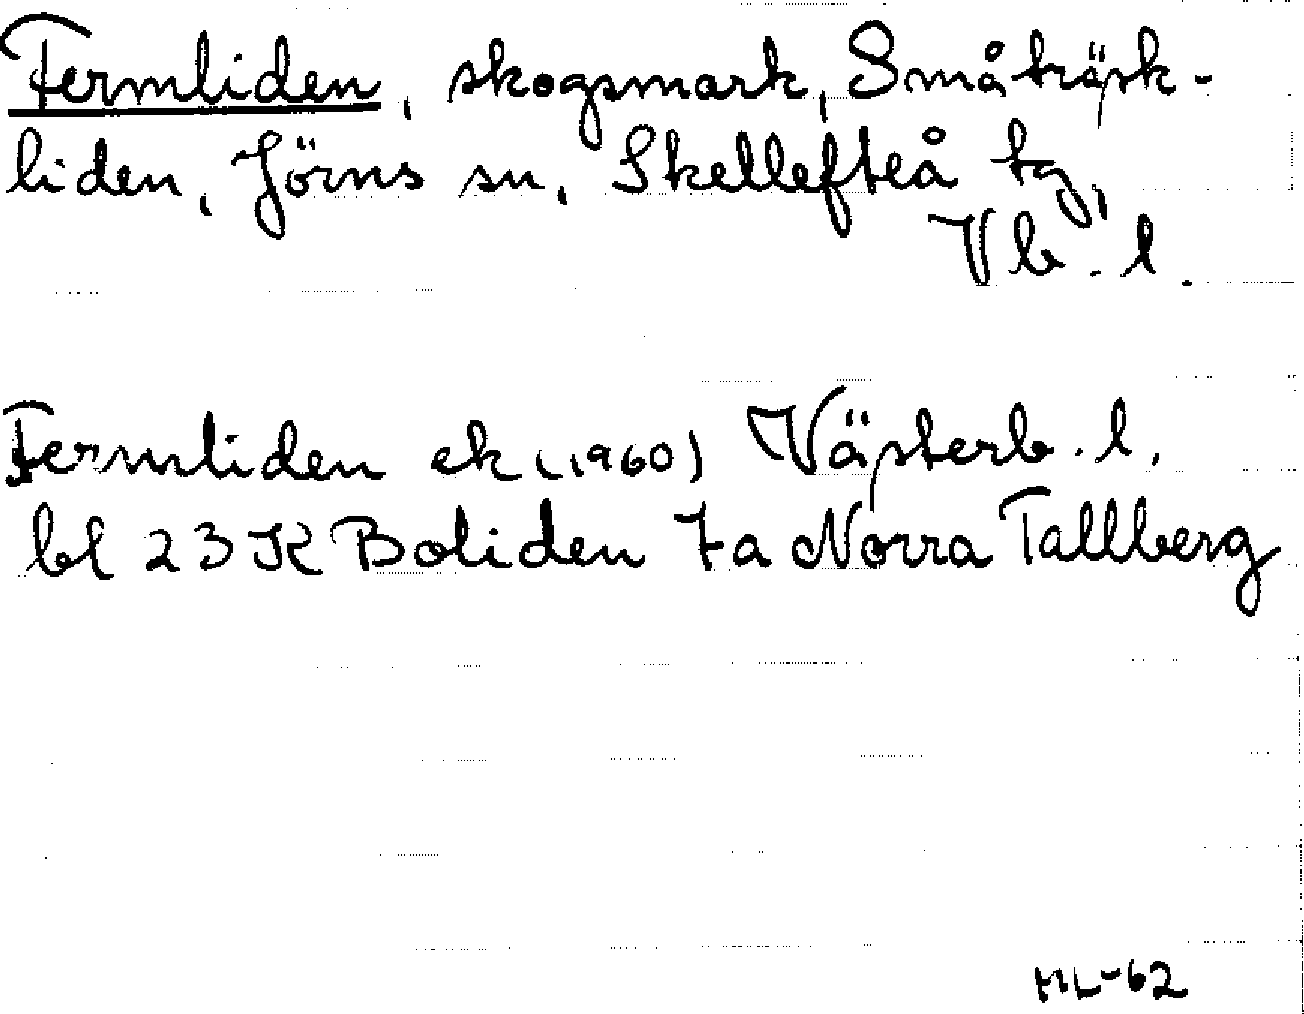 Fermliden, skogsmark, Småträsk-
liden, Jörns sn, Skellefteå tg,
Vb. l.
Fermliden ek (1960) Västerb. l.
bl 23K Boliden 7a Norra Tallberg
HL-62